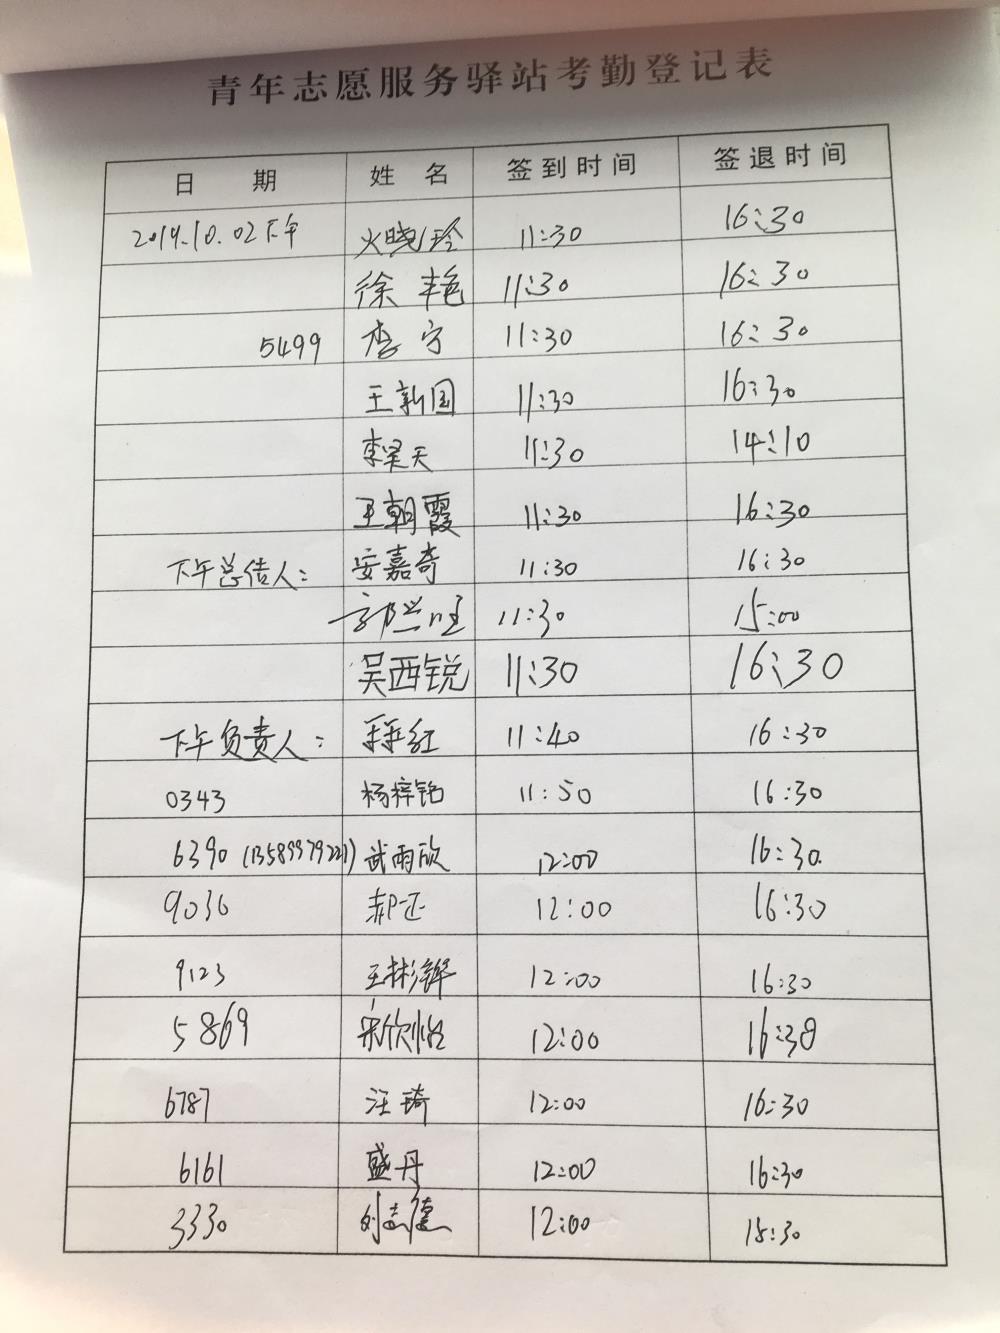 青年志愿服务驿站考勤登记表
日 期 姓 名 签到时间 签退时间
2019.10.02下午 火晓玲 11:30 16:30
徐艳 11:30 16:30
5499 李宁 11:30 16:30
王新国 11:30 16:30
李昊天 11:30 14:10
王朝霞 11:30 16:30
下午总借人: 安嘉奇 11:30 16:30
11:30 15:00
吴西锐 11:30 16:30
下午负责人: 11:40 16:30
0343 杨梓铭 11:50 16:30
6390 (13589979221) 武雨欣 12:00 16:30
9036 郝正 12:00 16:30
9123 王彬铧 12:00 16:30
5869 宋欣怡 12:00 16:30
6787 汪琦 12:00 16:30
6161 盛丹 12:00 16:30
3330 刘志德 12:00 15:30